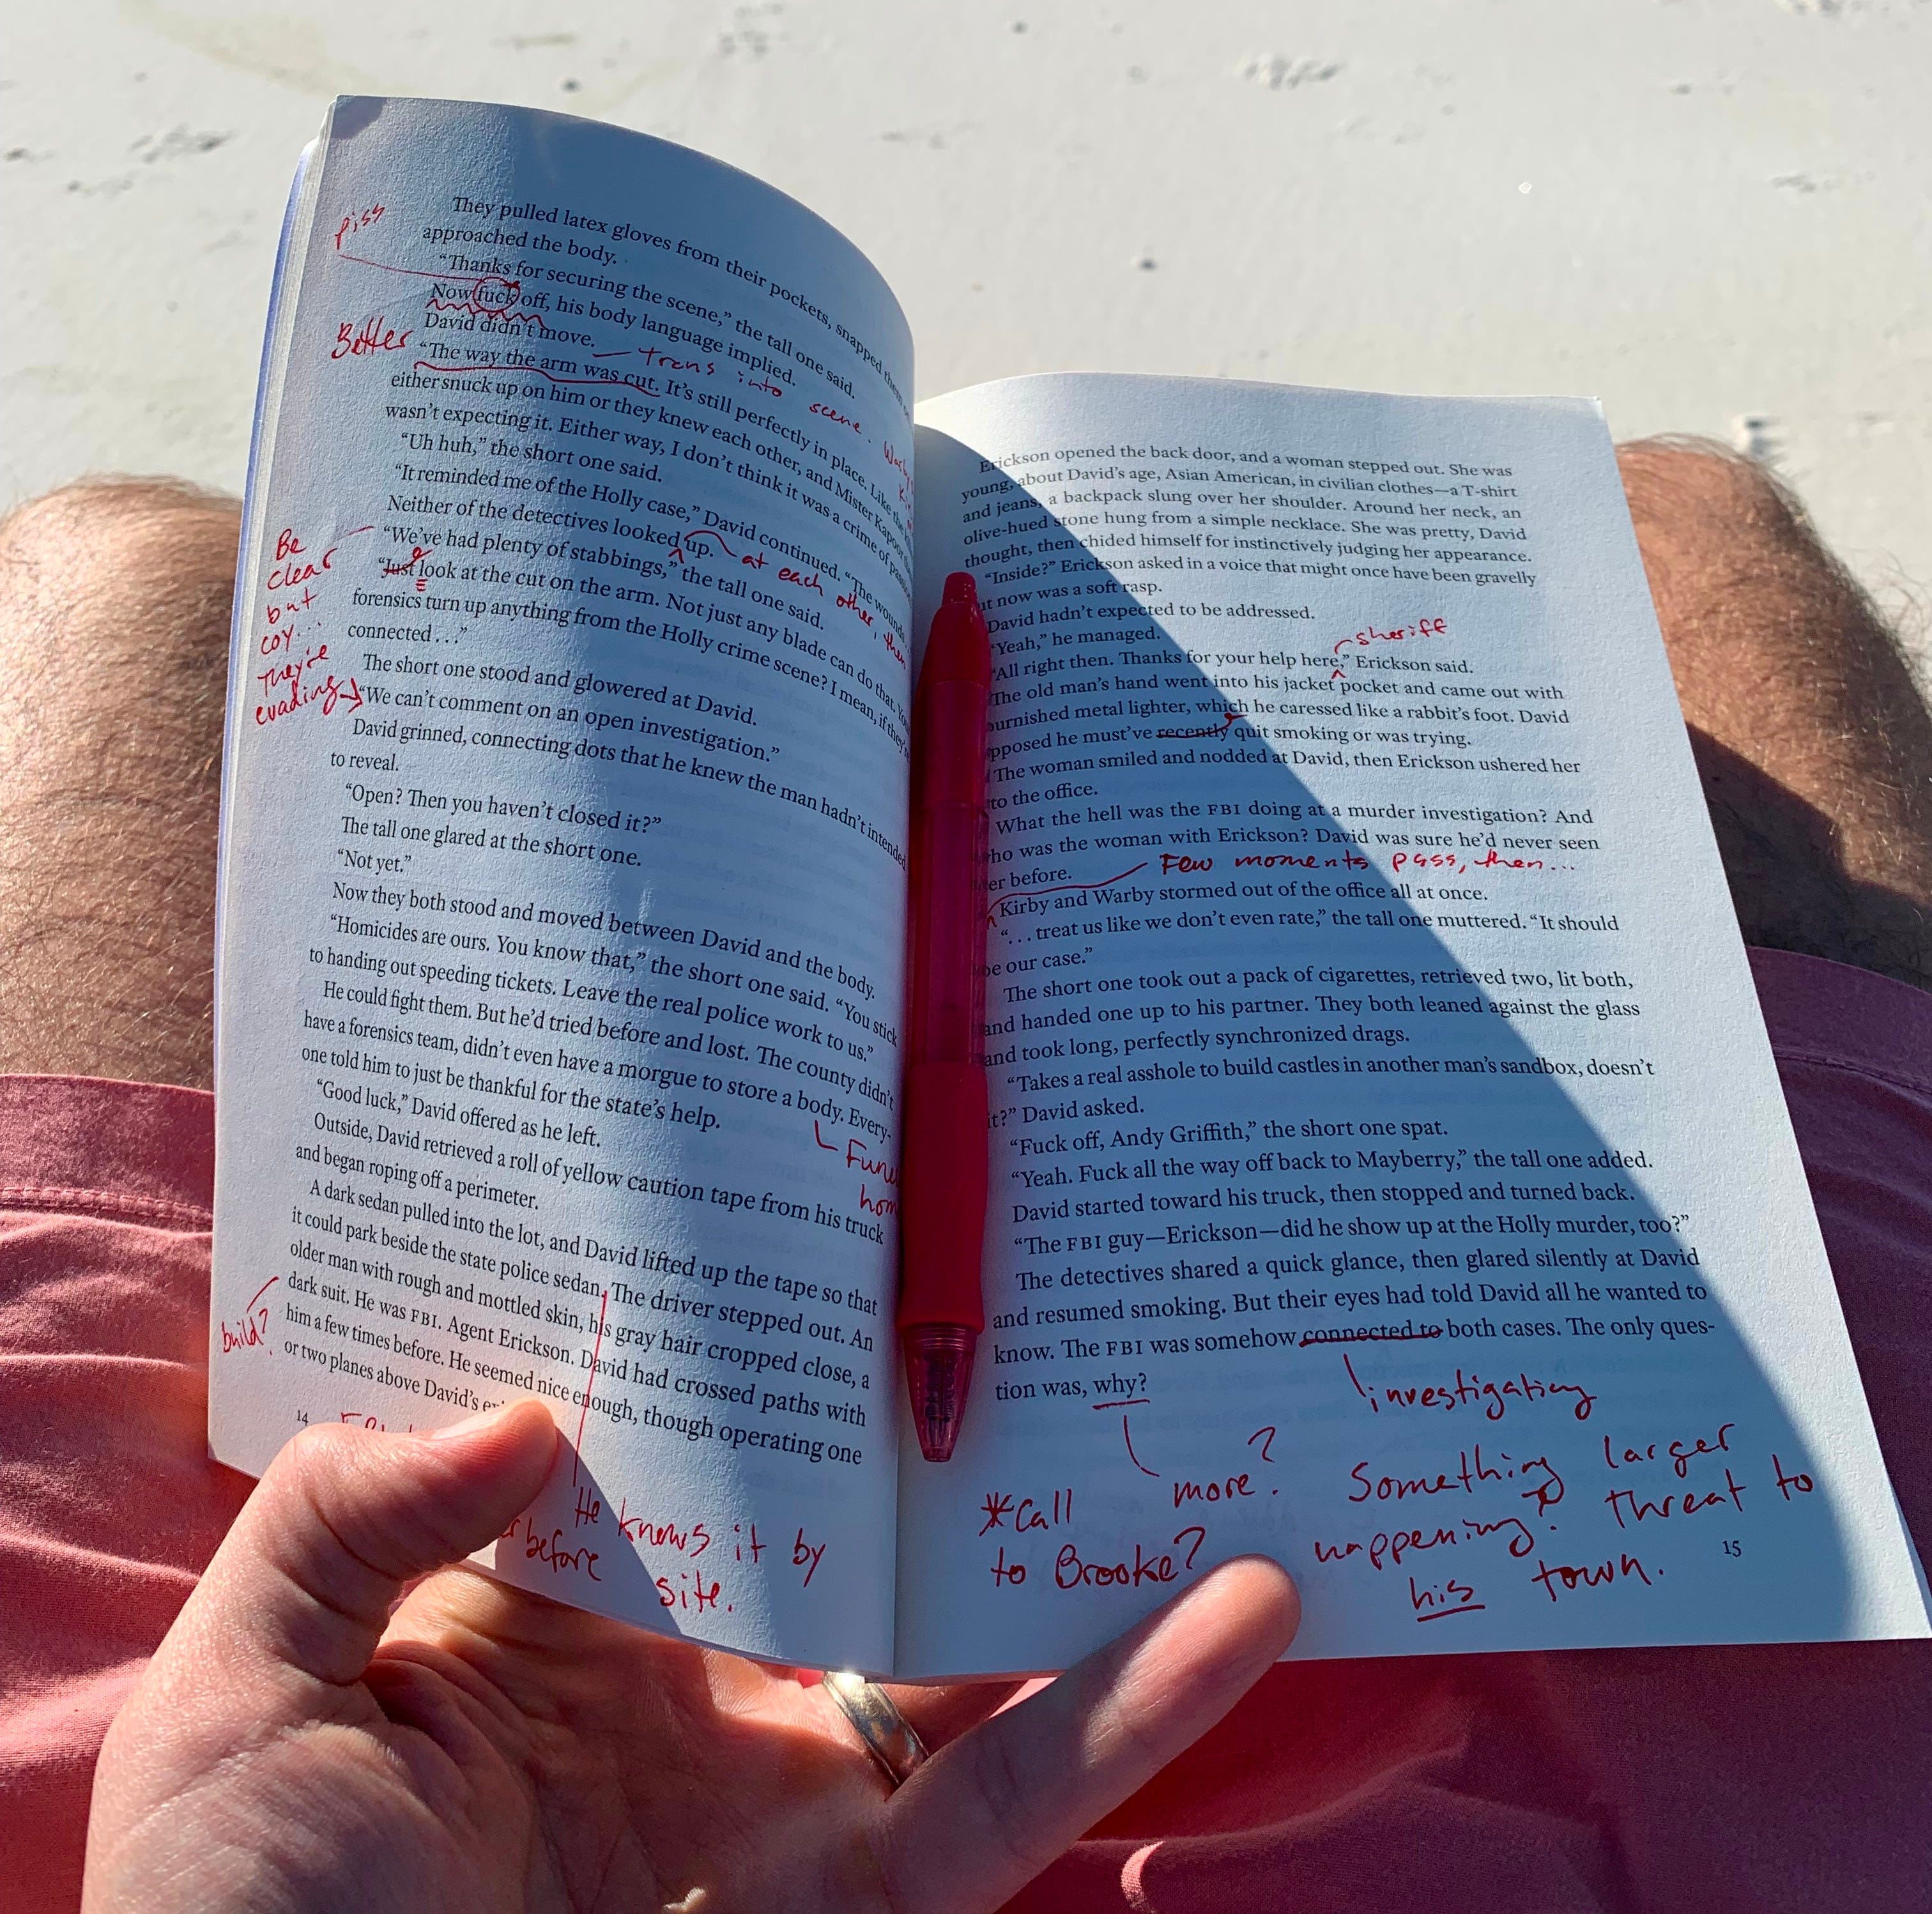 They pulled latex gloves from their pockets, snapped them
piss
approached the body.
“Thanks for securing the scene,” the tall one said.
Now fuck off, his body language implied.
David didn’t move.
Better
trans into scene.
“The way the arm was cut. It’s still perfectly in place. Like the
either snuck up on him or they knew each other, and Mister Kapoor
wasn’t expecting it. Either way, I don’t think it was a crime of
“Uh huh,” the short one said.
“It reminded me of the Holly case,” David continued. “The wounds
Neither of the detectives looked up.
at each other, then
“We’ve had plenty of stabbings,” the tall one said.
Be
clear
but
coy...
They’re
evading
“Just look at the cut on the arm. Not just any blade can do that.
forensics turn up anything from the Holly crime scene? I mean, if they’re
connected . . .”
The short one stood and glowered at David.
“We can’t comment on an open investigation.”
David grinned, connecting dots that he knew the man hadn’t intended
to reveal.
“Open? Then you haven’t closed it?”
The tall one glared at the short one.
“Not yet.”
Now they both stood and moved between David and the body.
“Homicides are ours. You know that,” the short one said. “You stick
to handing out speeding tickets. Leave the real police work to us.”
He could fight them. But he’d tried before and lost. The county didn’t
have a forensics team, didn’t even have a morgue to store a body. Every-
one told him to just be thankful for the state’s help.
“Good luck,” David offered as he left.
Outside, David retrieved a roll of yellow caution tape from his truck
and began roping off a perimeter.
A dark sedan pulled into the lot, and David lifted up the tape so that
it could park beside the state police sedan. The driver stepped out. An
older man with rough and mottled skin, his gray hair cropped close, a
dark suit. He was FBI. Agent Erickson. David had crossed paths with
build?
him a few times before. He seemed nice enough, though operating one
or two planes above David’s
14
He knows it by
before
site.
Erickson opened the back door, and a woman stepped out. She was
young, about David’s age, Asian American, in civilian clothes—a T-shirt
and jeans, a backpack slung over her shoulder. Around her neck, an
olive-hued stone hung from a simple necklace. She was pretty, David
thought, then chided himself for instinctively judging her appearance.
“Inside?” Erickson asked in a voice that might once have been gravelly
it now was a soft rasp.
David hadn’t expected to be addressed.
“Yeah,” he managed.
sheriff
“All right then. Thanks for your help here,” Erickson said.
The old man’s hand went into his jacket pocket and came out with
urnished metal lighter, which he caressed like a rabbit’s foot. David
pposed he must’ve recently quit smoking or was trying.
The woman smiled and nodded at David, then Erickson ushered her
to the office.
What the hell was the FBI doing at a murder investigation? And
ho was the woman with Erickson? David was sure he’d never seen
er before.
Few moments pass, then...
Kirby and Warby stormed out of the office all at once.
“. . . treat us like we don’t even rate,” the tall one muttered. “It should
be our case.”
The short one took out a pack of cigarettes, retrieved two, lit both,
and handed one up to his partner. They both leaned against the glass
and took long, perfectly synchronized drags.
“Takes a real asshole to build castles in another man’s sandbox, doesn’t
it?” David asked.
“Fuck off, Andy Griffith,” the short one spat.
“Yeah. Fuck all the way off back to Mayberry,” the tall one added.
David started toward his truck, then stopped and turned back.
“The FBI guy—Erickson—did he show up at the Holly murder, too?”
The detectives shared a quick glance, then glared silently at David
and resumed smoking. But their eyes had told David all he wanted to
know. The FBI was somehow connected to both cases. The only ques-
tion was, why?
investigating
more?
*Call
to Brooke?
Something larger
happening? threat to
his town.
15